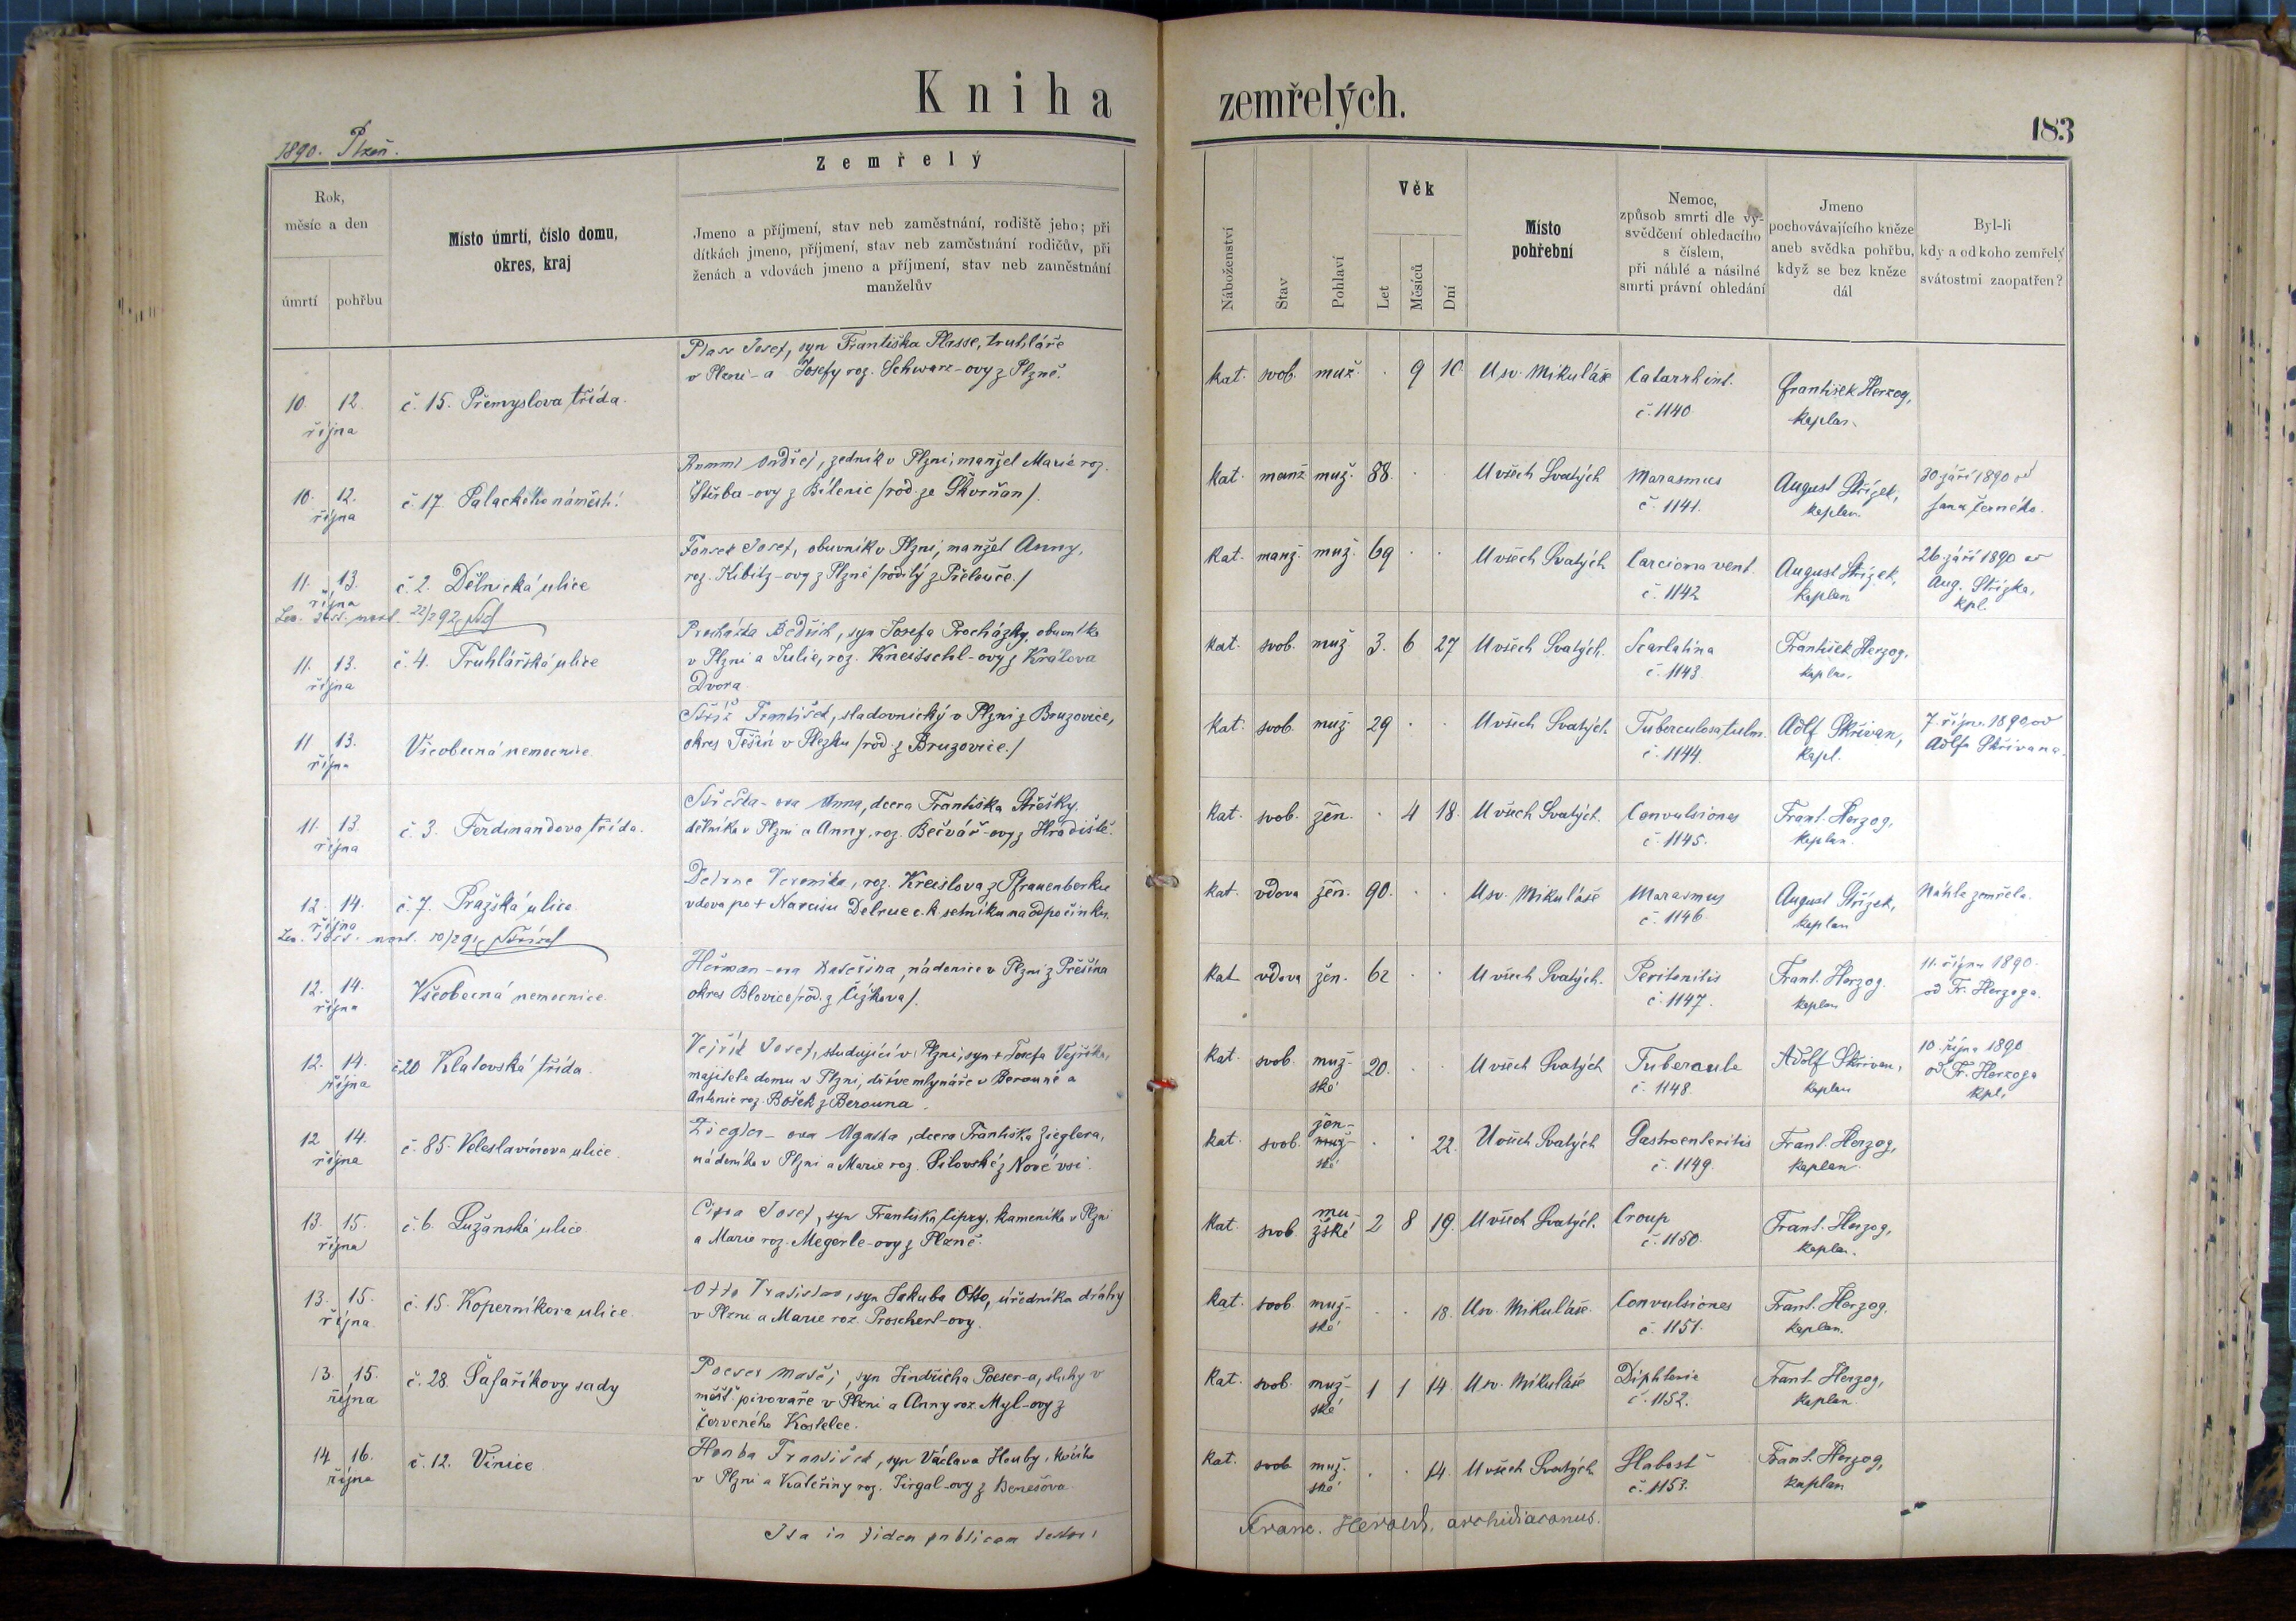 Kniha zemřelých.
183
1890. Plzeň.
Zemřelý
Rok,
měsíc a den
úmrtí
pohřbu
Místo úmrtí, číslo domu,
okres, kraj
Jmeno a příjmení, stav neb zaměstnání, rodiště jeho; při
dítkách jmeno, příjmení, stav neb zaměstnání rodičův, při
ženách a vdovách jmeno a příjmení, stav neb zaměstnání
manželův
Náboženství
Stav
Pohlaví
Věk
Let
Měsíců
Dní
Místo
pohřební
Nemoc,
způsob smrti dle vy-
svědčení ohledacího
s číslem,
při náhlé a násilné
smrti právní ohledání
Jmeno
pochovávajícího kněze
aneb svědka pohřbu,
když se bez kněze
dál
Byl-li
kdy a od koho zemřelý
svátostmi zaopatřen?
10. 12.
října
č. 15. Přemyslova třída.
Plass Josef, syn Františka Plasse, truhláře
v Plzni a Josefy roz. Schwarz-ovy z Plzně.
kat. svob. muž. . 9 10 U sv. Mikuláše
Catarrh int.
č. 1140.
František Herzog,
kaplan.
10. 12.
října
č. 17 Palackého náměstí.
Ondřej, zedník v Plzni, manžel Marie roz.
Štěrba-ovy z Bílenic /rod. ze Skvrňan/.
kat. manž. muž. 88. . . U všech Svatých
Marasmus
č. 1141.
August Střízek,
kaplan.
30 září 1890 od
Jana Černého.
11. 13.
října
č. 2. Dělnická ulice
Josef, obuvník v Plzni, manžel Anny,
roz. Kibitz-ovy z Plzně /rodilý z Přelouče./
kat. manž. muž. 69 . . U všech Svatých
Carcioma vent.
č. 1142
August Střízek,
kaplan
26. září 1890 od
Aug. Střízka,
kpl.
11. 13.
října
č. 4. Truhlářská ulice
Procházka Bedřich, syn Josefa Procházky, obuvníka
v Plzni a Julie, roz. Kneisschl-ovy z Králova
Dvora
kat. svob. muž 3. 6 27 U všech Svatých.
Scarlatina
č. 1143.
František Herzog,
kaplan.
11 13.
října
Všeobecná nemocnice.
Stříž František, sladovnický v Plzni z Bruzovice,
okres Těšín v Slezku /rod. z Bruzovice./
kat. svob. muž. 29 . . U všech Svatých
Tuberculosa pulm.
č. 1144.
Adlf Skřivan,
kapl.
7. října 1890 od
Adlfa Skřivana.
11. 13.
října
č. 3. Ferdinandova třída.
Střeska-ova Anna, dcera Františka Střešky,
dělníka v Plzni a Anny, roz. Bečvář-ovy z Hradiště.
kat. svob. žen. . 4 18. U všech Svatých.
Convulsiones
č. 1145.
Frant. Herzog,
kaplan.
12. 14.
října
č. 7. Pražská ulice
Delrue Veronika, roz. Kreislova z Pfrauenberku
vdova po + Narcisu Delrue c. k. setníku na odpočinku.
kat. vdova žen. 90. . . U sv. Mikuláše
Marasmus
č. 1146
August Střízek,
kaplan
Náhle zemřela.
12. 14.
října
Všeobecná nemocnice.
Heřman-ova Kateřina, nádenice v Plzni z Přešína
okres Blovice /rod. z Čížkova/.
kat vdova žen. 62 . . U všech Svatých.
Peritonitis
č. 1147.
Frant. Herzog.
kaplan
11. října 1890.
od Fr. Herzoga.
12. 14.
října
č. 20 Klatovská třída.
Vejřík Josef, studující v Plzni, syn + Josefa Vejříka,
majitele domu v Plzni, dříve mlynáře v Berouně a
Antonie roz. Bošek z Berouna.
kat. svob. muž-ské 20. . . U všech Svatých
Tuberculo
č. 1148
Adolf Skřivan,
kaplan
10. října 1890
od Fr. Herzoga
kpl.
12 14.
října
č. 85. Veleslavínova ulice.
Ziegler-ova Agatha, dcera Františka Zieglera,
nádeníka v Plzni a Marie roz. Silovské z Nové vsi.
kat. svob. žen-ské . . 22. U všech Svatých
Gastroenteritis
č. 1149.
Frant. Herzog,
kaplan.
13. 15.
října
č. 6. Lužanská ulice
Cipra Josef, syn Františka Cipry, kameníka v Plzni
a Marie roz. Megerle-ovy z Plzně.
kat. svob. mu-žské 2 8 19. U všech Svatých.
Croup
č. 1150.
Frant. Herzog,
kaplan.
13. 15.
října
č. 15. Koperníkova ulice
Otto Vratislav, syn Jakuba Otto, úředníka dráhy
v Plzni a Marie roz. Proschert-ovy.
kat. svob. muž-ské . . 18. U sv. Mikuláše.
Convulsiones
č. 1151.
Frant. Herzog.
kaplan.
13. 15.
října
č. 28. Šafaříkovy sady
Poeser Matěj, syn Jindřicha Poeser-a, sluhy v
měšť. pivovaře v Plzni a Anny roz. Myl-ovy z
Červeného Kostelce.
kat. svob. muž-ské 1 1 14. U sv. Mikuláše
Diphteria
č. 1152.
Frant. Herzog,
kaplan.
14 16.
října
č. 12. Vinice.
Houba František, syn Václava Houby,
v Plzni a Kateřiny roz. Jirgal-ovy z Benešova.
kat. svob muž-ské . . 14. U všech Svatých
Slabosť
č. 1153.
Frant. Herzog,
kaplan
Ita in fidem publicam testor:
Franc. Herold, archidiaconus.